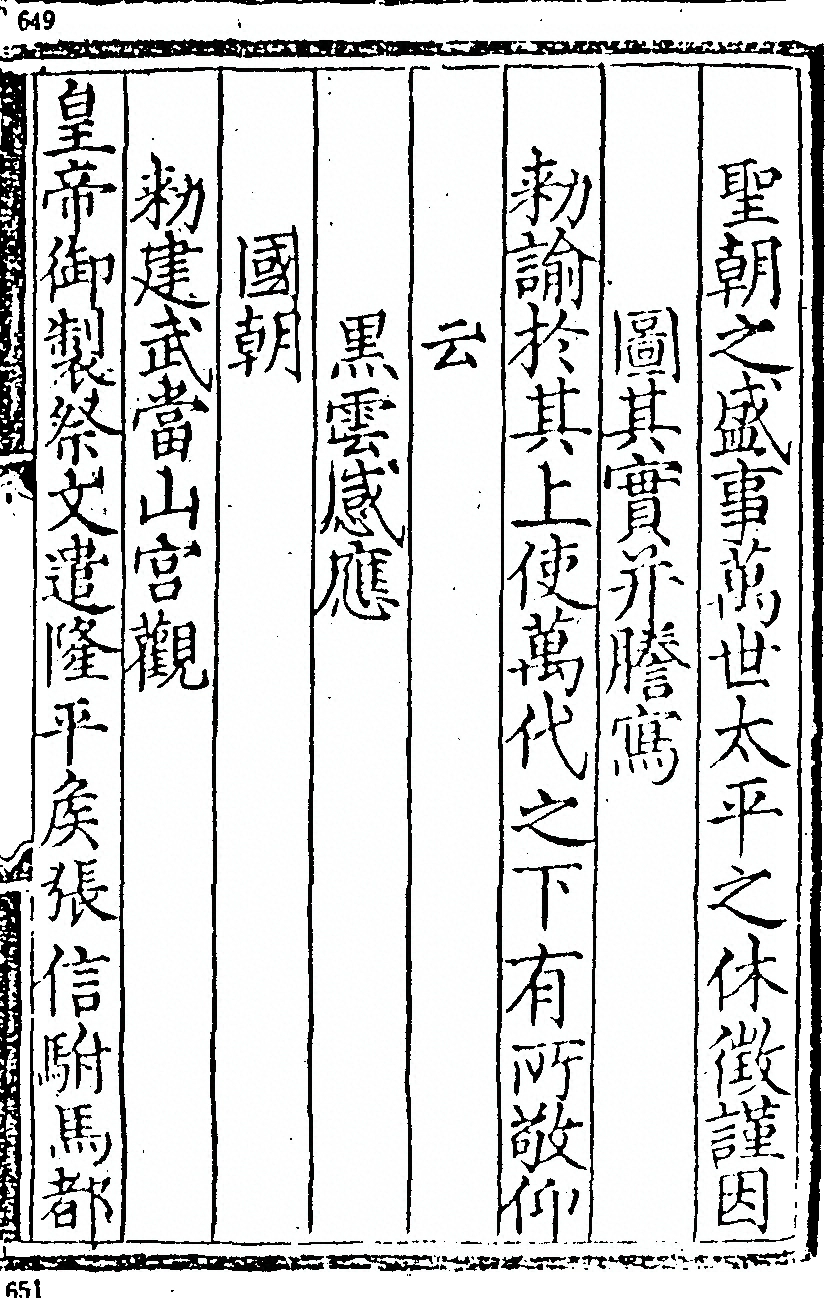 649
聖朝之盛事萬世太平之休徵謹因
圖其實并謄寫
勑諭於其上使萬代之下有所敬仰
云
黒雲感應
國朝
勑建武當山宮觀
皇帝御製祭文遣隆平侯張信駙馬都
651